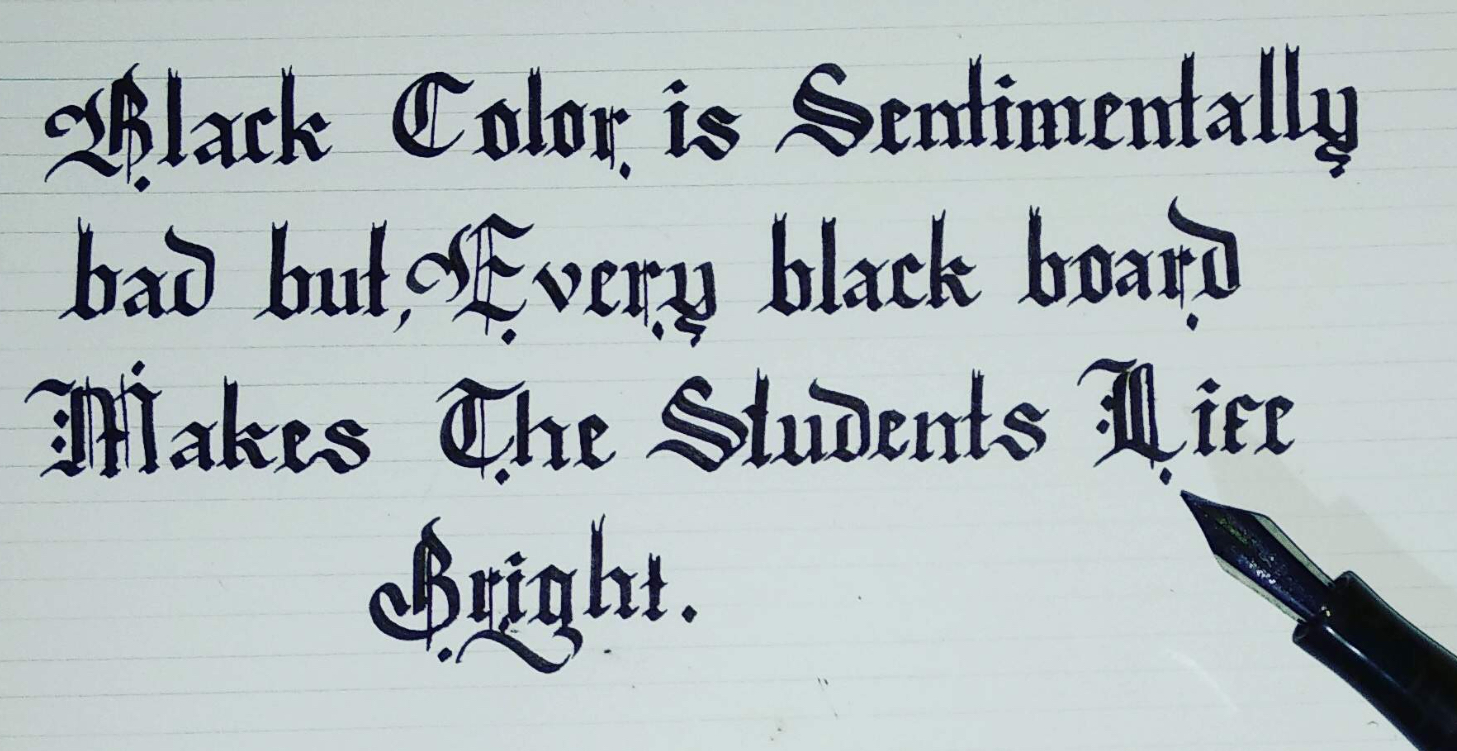 Black Color is Sentimentally
bad but, Every black board
Makes The Students Life
Bright.